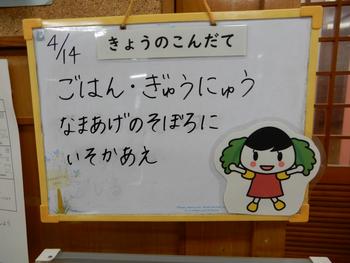 4/14
きょうのこんだて
ごはん・ぎゅうにゅう
なまあげのそぼろに
いそかあえ